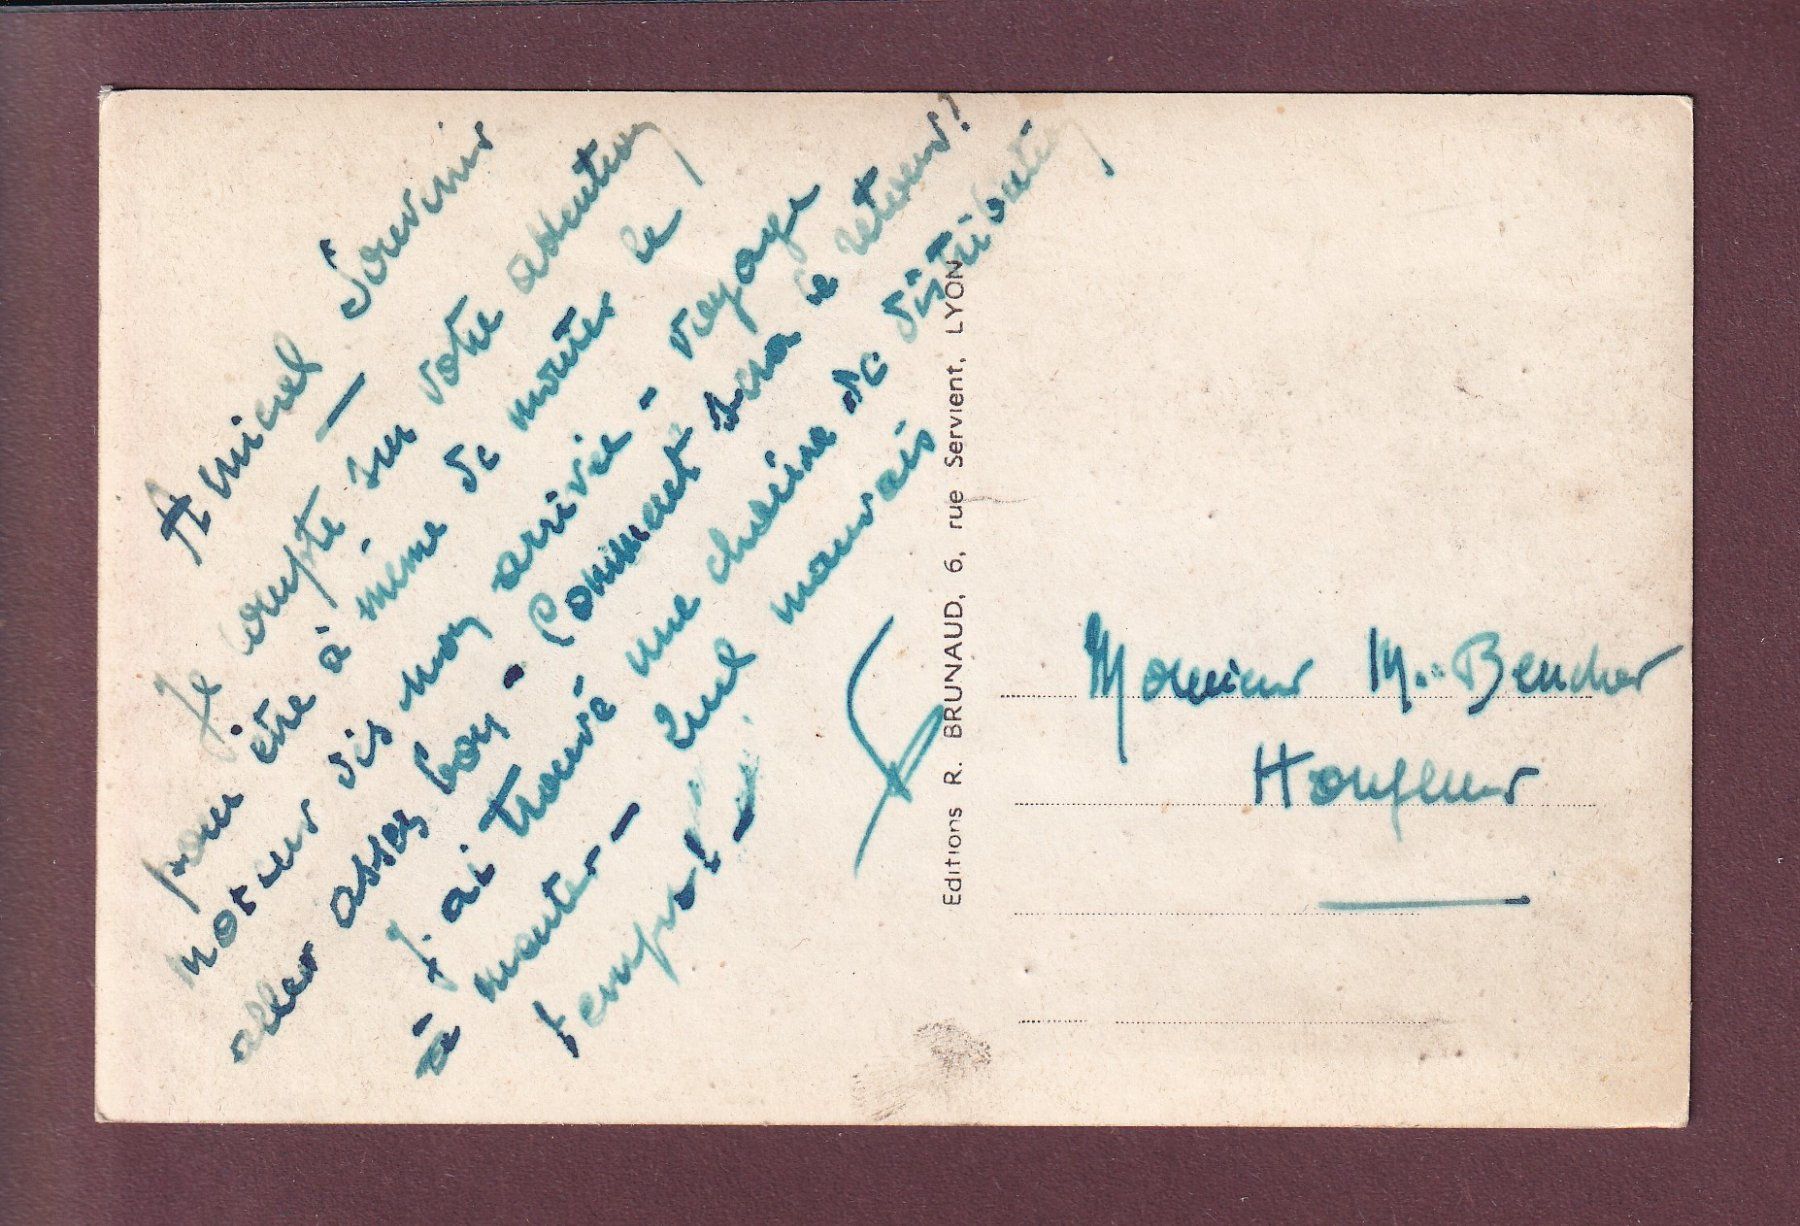 Amical Souvenir
—
Je compte sur votre attention
pour être à même de monter le
moteur dis mon arrivée - voyage
aller assez bon - Comment sera le retour!
J'ai trouvé une chaîne de distribution
à monter - quel mauvais
temps! -
Editions R. BRUNAUD, 6, rue Servient, LYON
Monsieur M. Beucher
Honfleur